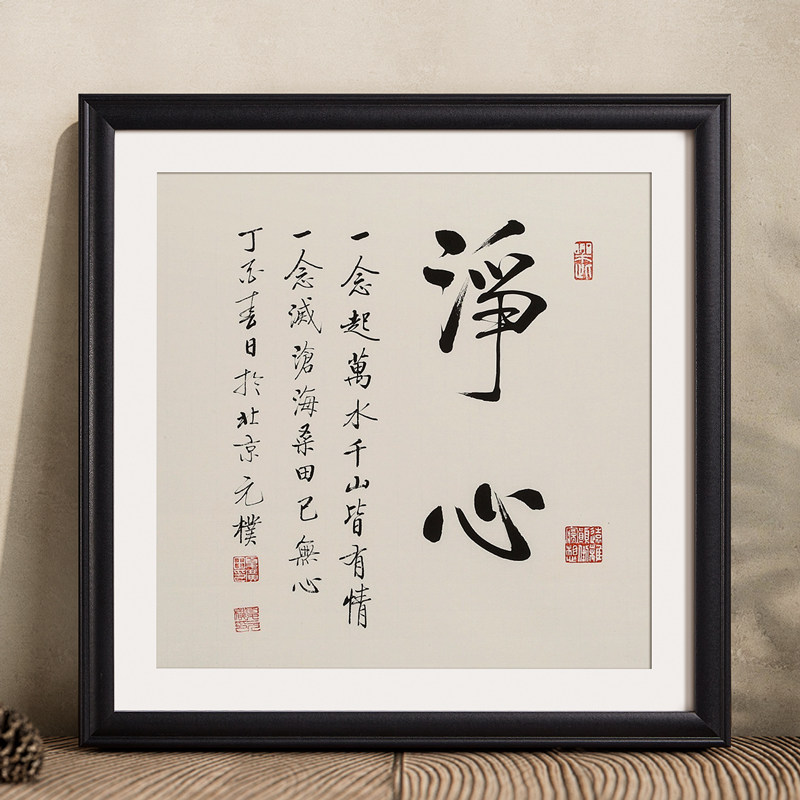 遠離
顛倒
夢想
淨心
一念起萬水千山皆有情
一念滅滄海桑田已無心
丁酉春日於北京元樸